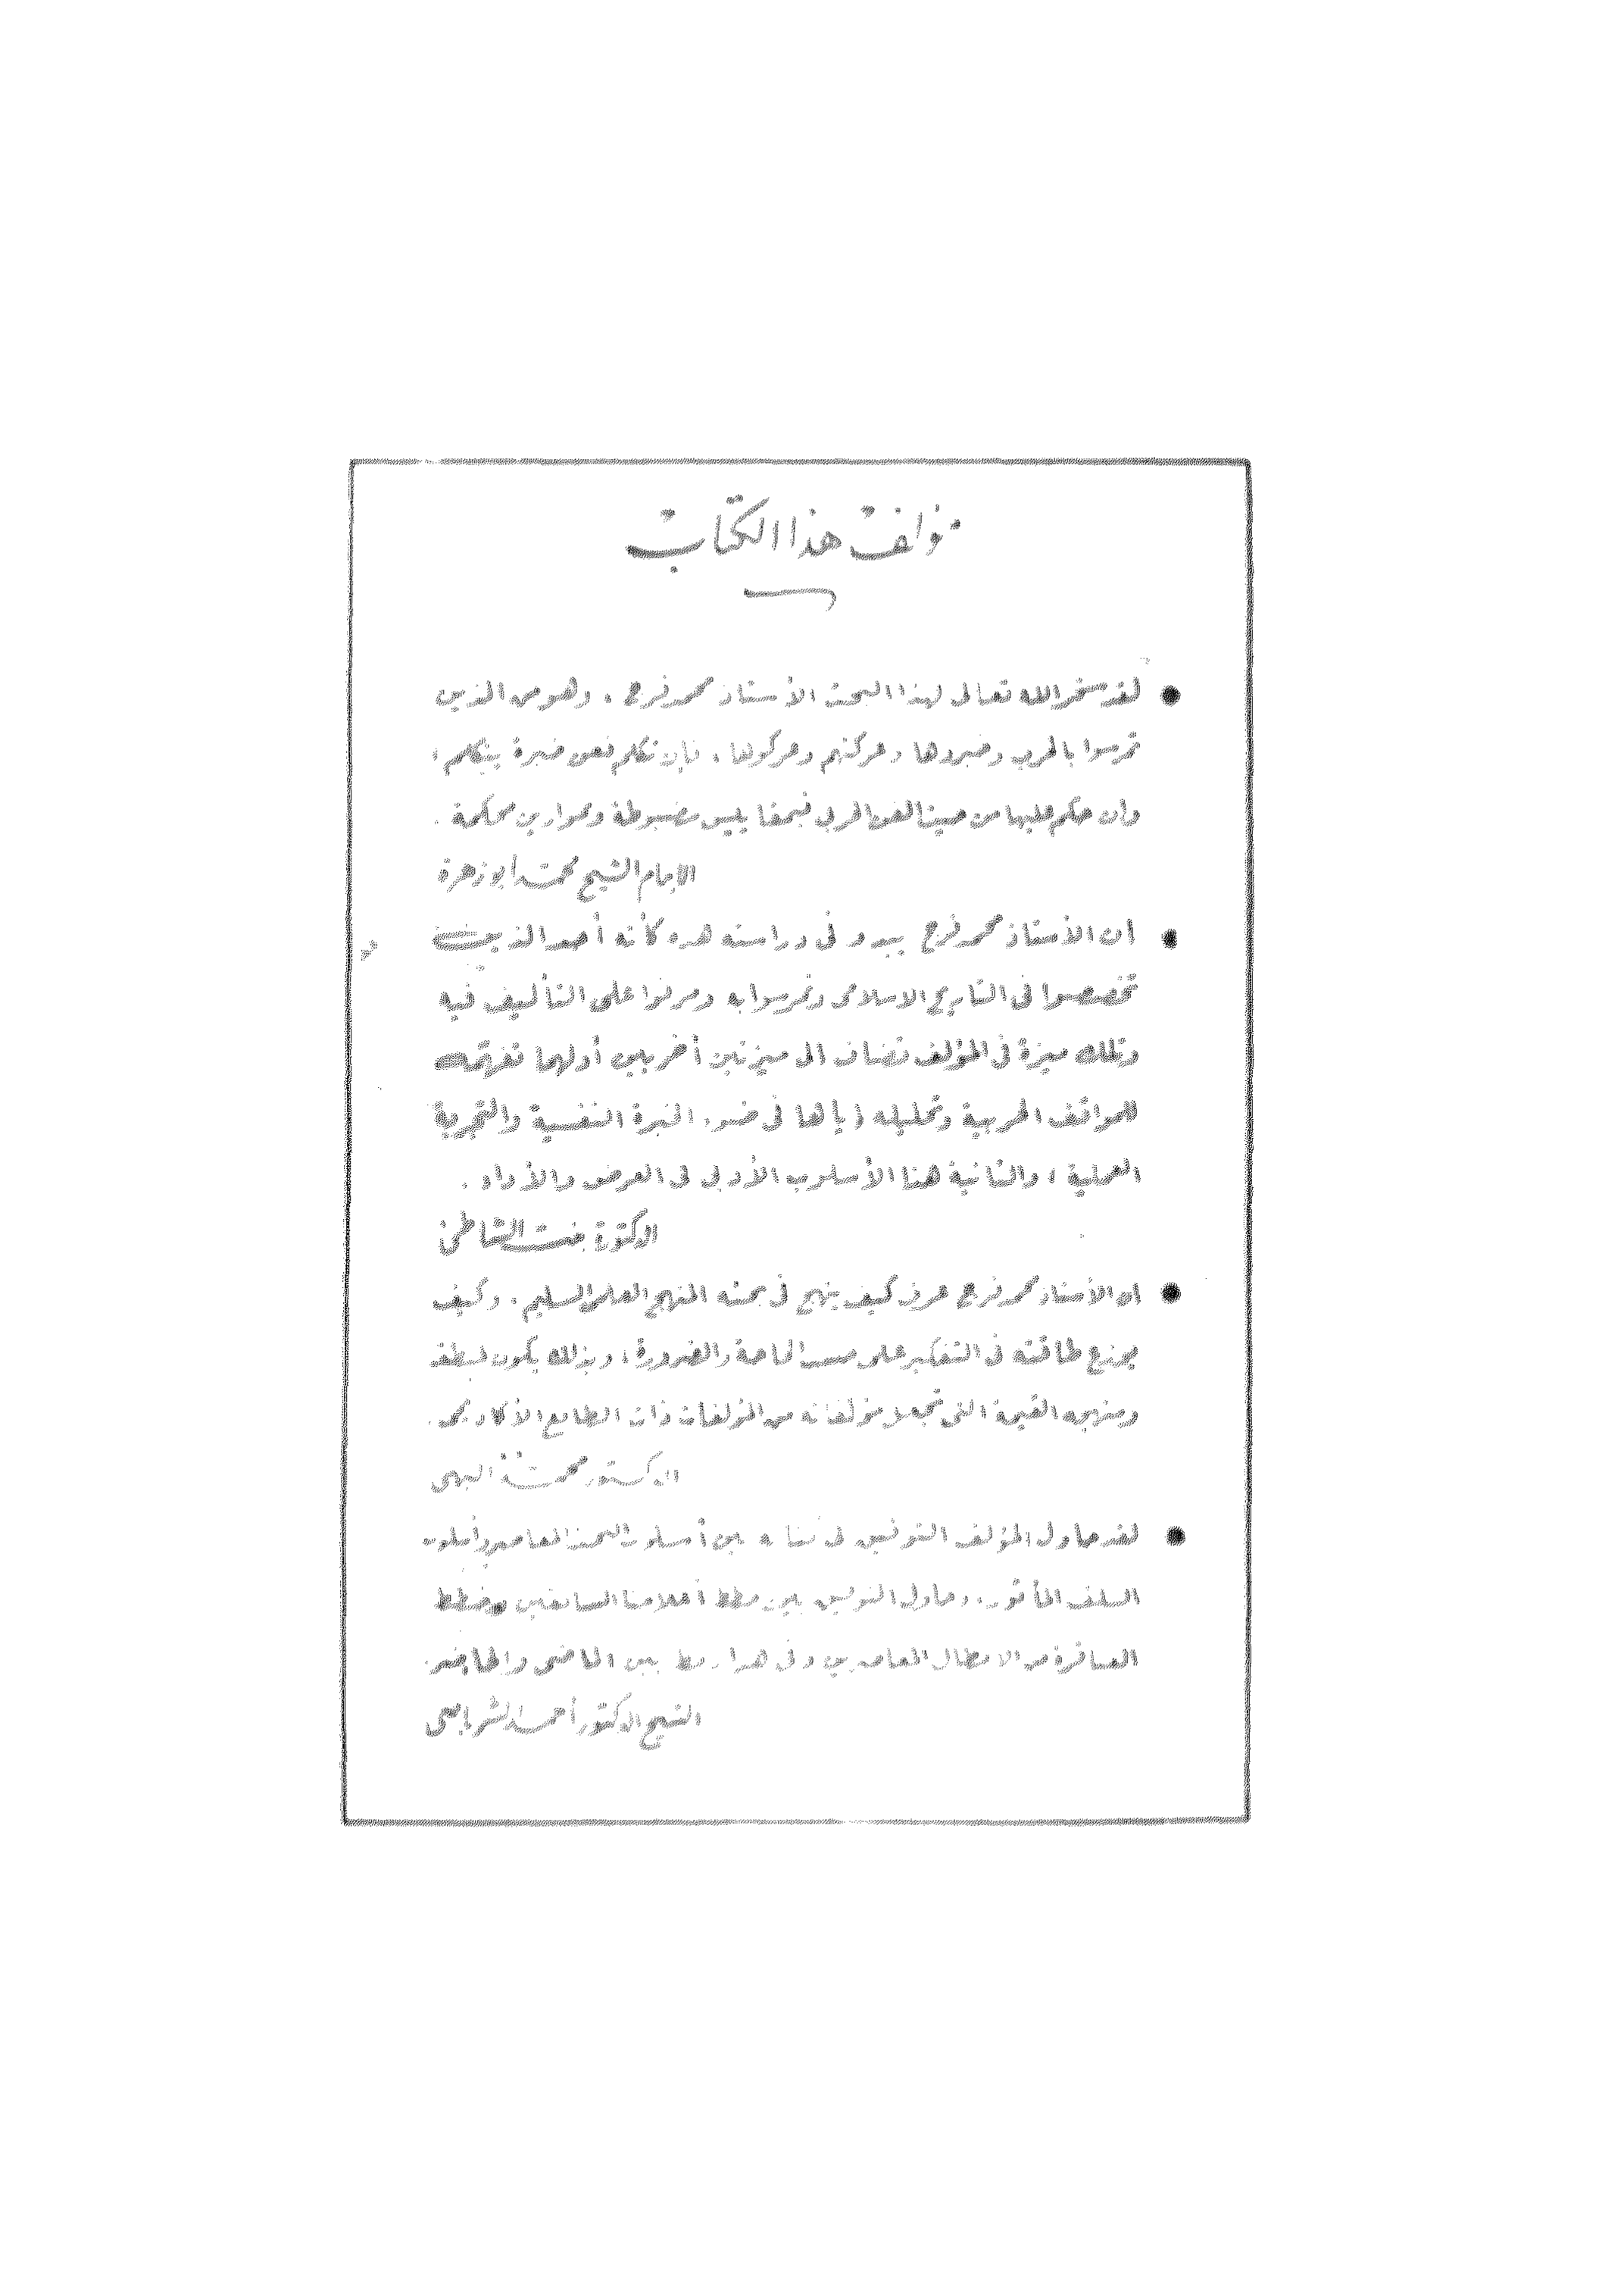 مؤلف هذا الكتاب
● لقد سخر الله تعالى لهذا البحث الأستاذ محمد فرج ، وهو من الذين
تمرسوا بالحرب وخبروها وعركتهم وعركوها ، فإن تكلم فعن خبرة يتكلم ،
وان حكم عليها من حيث الفن الحربى فبمقاييس مضبوطة وموازين محكمة .
الإمام الشيخ محمد أبو زهرة
● ان الأستاذ محمد فرج يبدو فى دراسته هذه كأنه أحد الذين
تخصصوا فى التاريخ الاسلامى وتمرسوا به ومرنوا على التأليف فيه
وتلك ميزة فى المؤلف تضاف الى ميزتين أخريين أولهما تفهمه
للمواقف الحربية وتحليله اياها فى ضوء الخبرة النفسية والتجربة
العملية ، والثانية هذا الأسلوب الأدبى فى العرض والأداء .
الدكتورة بنت الشاطئ
● ان الأستاذ محمد فرج عرف كيف ينهج فى بحثه المنهج العلمى السليم . وكيف
يوزع طاقته فى التفكير على حسب الحاجة والضرورة ، وبذلك يكون لمنطقه
ومنهجه القيمة التى تجعل مؤلفاته من المؤلفات ذات الطابع الأكاديمى .
الدكتور محمد البهى
● لقد حاول المؤلف التوفيق فى كتابه بين أسلوب البحث المعاصر وأسلوب
السلف المأثور ، وحاول التوفيق بين خطط أعلامنا السابقين وخطط
العباقرة من الابطال المعاصرين وفى هذا ربط بين الماضى والحاضر .
الشيخ الدكتور أحمد الشرباصى